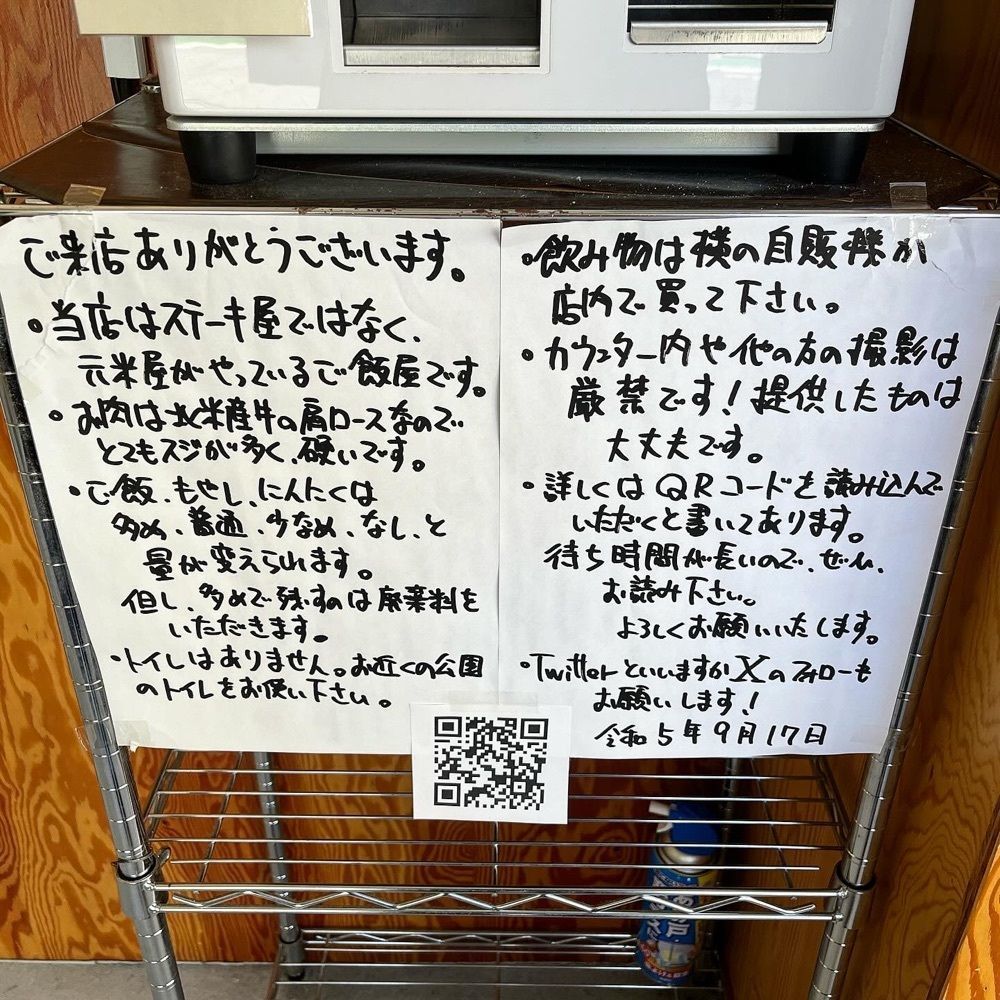 ご来店ありがとうございます。
・当店はステーキ屋ではなく、
元米屋がやっているご飯屋です。
・お肉は北米産牛の肩ロースなので
とてもスジが多く、硬いです。
・ご飯、もやし、にんにくは
多め、普通、少なめ、なし、と
量が変えられます。
但し、多めで残すのは廃棄料を
いただきます。
・トイレはありません。お近くの公園
のトイレをお使い下さい。
・飲み物は横の自販機か
店内で買って下さい。
・カウンター内や他の方の撮影は
厳禁です!提供したものは
大丈夫です。
・詳しくはQRコードを読み込んで
いただくと書いてあります。
待ち時間が長いので、ぜひ、
お読み下さい。
よろしくお願いいたします。
・TwitterといいますかXのフォローも
お願いします!
令和5年9月17日